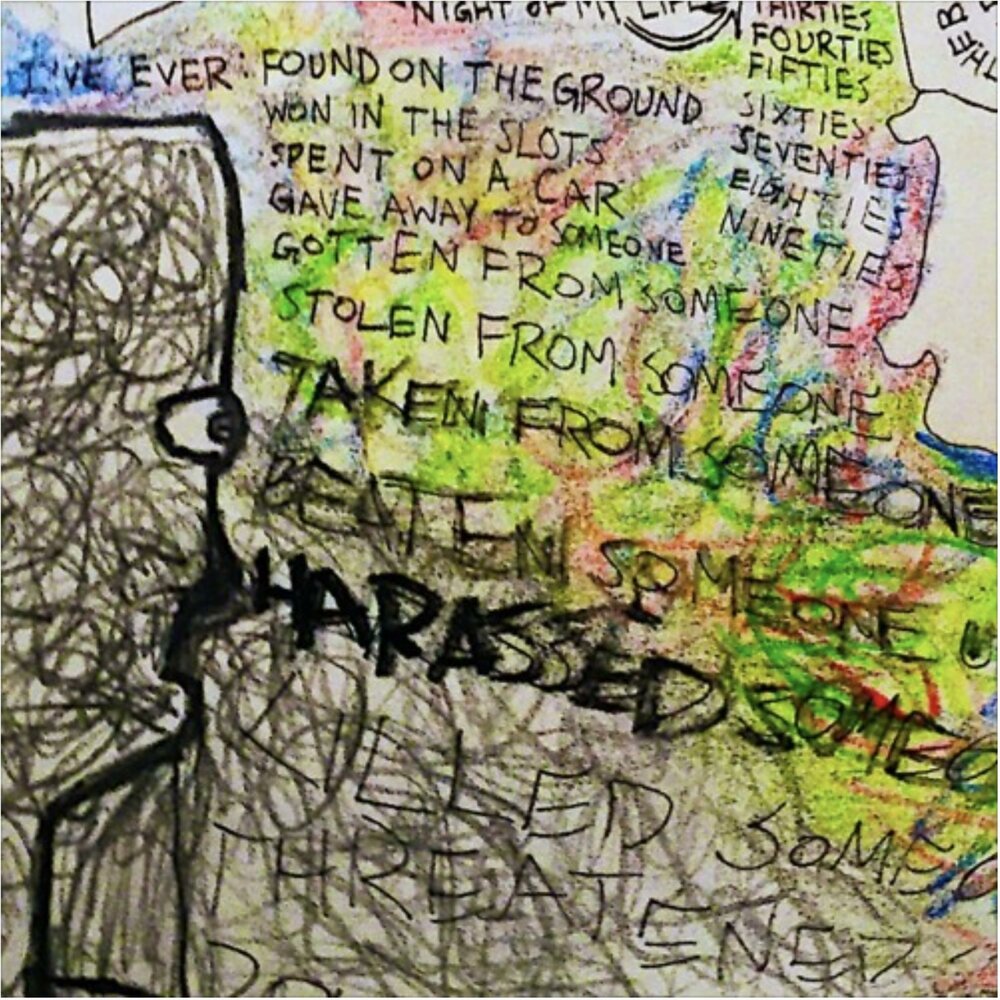 NIGHT OF MY LIFE
I'VE EVER: FOUND ON THE GROUND
WON IN THE SLOTS
SPENT ON A CAR
GAVE AWAY TO SOMEONE
GOTTEN FROM SOMEONE
STOLEN FROM SOMEONE
TAKEN FROM SOMEONE
BEATEN SOMEONE U
HARASSED SOMEO
KILLED SOMEO
THREATENED
THIRTIES
FOURTIES
FIFTIES
SIXTIES
SEVENTIES
EIGHTIES
NINETIES